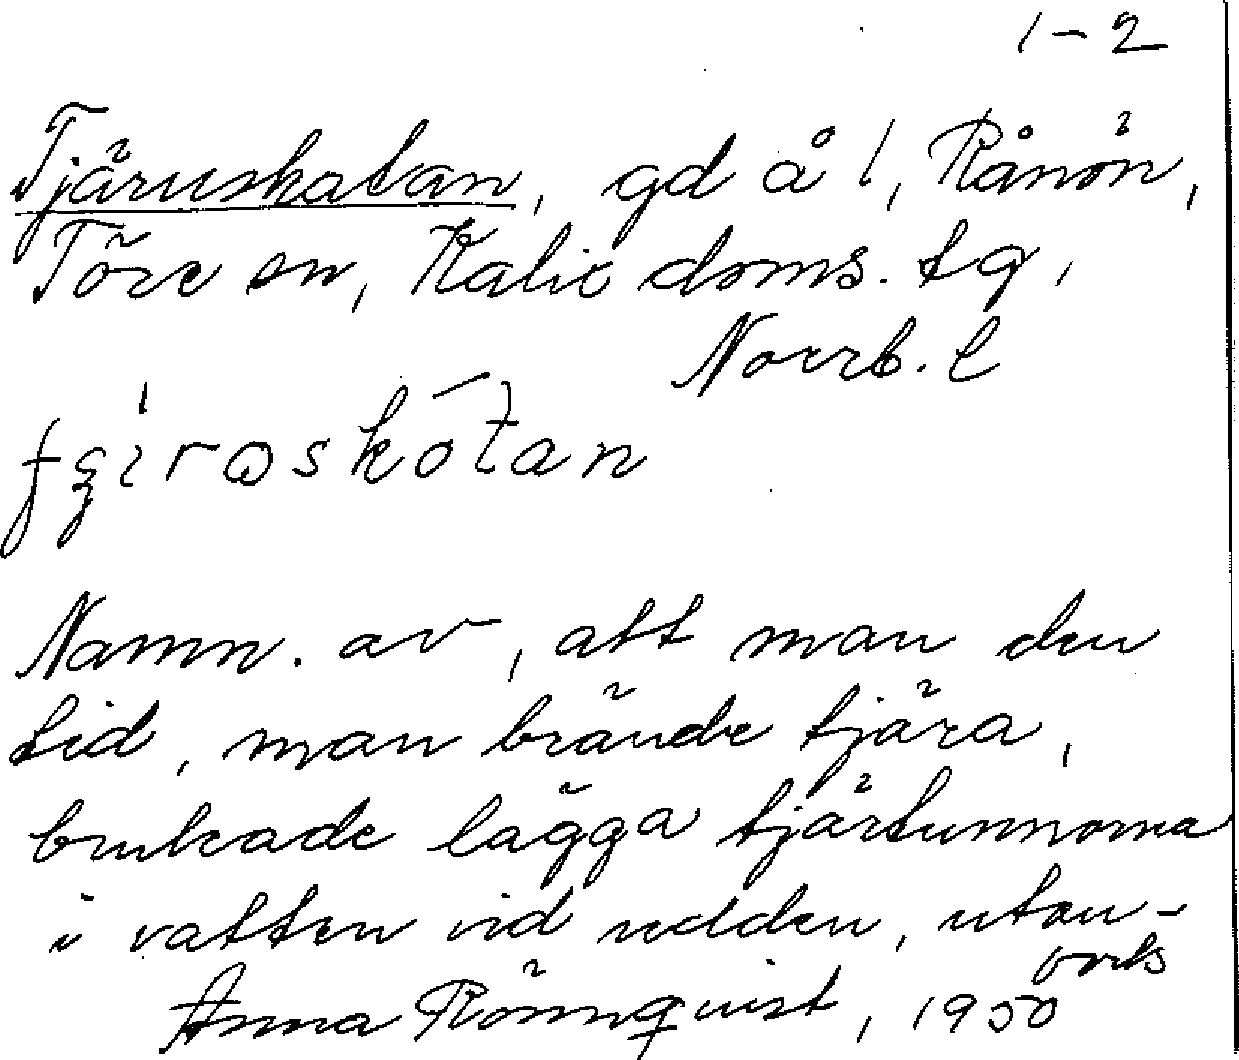 1-2
Tjäruskatan, gd å 1, Rånön,
Töre sn, Kalix doms. tg,
Norrb. l
Namn. av, att man den
tid, man brände tjära,
brukade lägga tjärtunnorna
i vatten vid udden, utan-
Anna Rönnquist, 1950